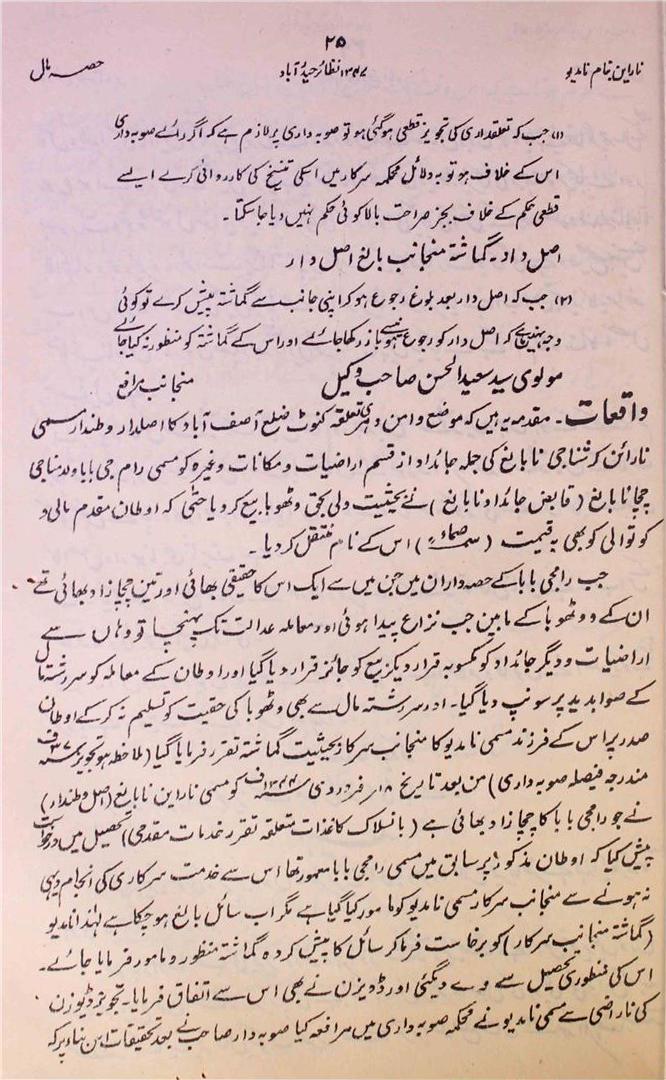 ۲۵
ناراین بنام نامدیو ۱۳۴۷ نظائر حیدرآباد حصہ مال
(۱) جب کہ تعلقداری کی تجویز قطعی ہوگئی ہو تو صوبہ داری پر لازم ہے کہ اگر رائے صوبہ داری
اس کے خلاف ہو تو بہ دلائل محکمہ سرکار میں اسکی تنسیخ کی کارروائی کرے ایسے
قطعی حکم کے خلاف بجز صراحت بالا کوئی حکم نہیں دیا جا سکتا۔
اصل داد۔ گماشتہ منجانب بالغ اصل دار
(۲) جب کہ اصل دار بعد بلوغ رجوع ہو کر اپنی جانب سے گماشتہ پیش کرے تو کوئی
وجہ نہیں ہے کہ اصل دار کو رجوع ہونے سے باز رکھا جائے اور اس کے گماشتہ کو منظور نہ کیا جائے
مولوی سید سعید الحسن صاحب وکیل منجانب مرافع
واقعات۔ مقدمہ یہ ہیں کہ موضع وامن تعلقہ کنوٹ ضلع آصف آباد کا اصلدار وطندار مسمی
نارائن کرشناجی نابالغ کی جملہ جائداد از قسم اراضیات و مکانات وغیرہ کو مسمی رام جی بابا ولد مناجی
چچا نابالغ (قابض جائداد نابالغ) نے بحیثیت ولی بحق وٹھوبا بیع کر دیا حتٰی کہ اوطان مقدم مالی و
کوتوالی کو بھی بہ قیمت اس کے نام منتقل کر دیا۔
جب رامجی بابا کے حصہ داران میں جن میں سے ایک اس کا حقیقی بھائی اور تین چچا زاد بھائی تھے
ان کے و وٹھوبا کے مابین جب نزاع پیدا ہوئی اور معاملہ عدالت تک پہنچا تو وہاں سے
اراضیات و دیگر جائداد کو مکسوبہ قرار دیکر بیع کو جائز قرار دیا گیا اور اوطان کے معاملہ کو سررشتہ مال
کے صوابدید پر سونپ دیا گیا۔ اور سررشتہ مال سے بھی وٹھوبا کی حقیت کو تسلیم نہ کر کے اوطان
صدر پر اس کے فرزند مسمی نامدیو کا منجانب سرکار بحیثیت گماشتہ تقرر فرمایا گیا (ملاحظہ ہو تجویز
مندرجہ فیصلہ صوبہ داری) من بعد تاریخ ۱۸ فروردی کو مسمی ناراین نابالغ (اصل وطندار)
نے جو رامجی بابا کا چچا زاد بھائی ہے (بانسلاک کاغذات متعلقہ تقرر خدمات مقدمی) تحصیل میں درخواست
پیش کیا کہ اوطان مذکور پر سابق میں مسمی رامجی بابا مامور تھا اس سے خدمت سرکاری کی انجام دہی
نہ ہونے سے منجانب سرکار مسمی نامدیو کو مامور کیا گیا ہے مگر اب سائل بالغ ہو چکا ہے لہٰذا نامدیو
(گماشتہ منجانب سرکار) کو برخاست فرما کر سائل کا پیش کردہ گماشتہ منظور و مامور فرمایا جائے۔
اس کی منظوری تحصیل سے دے دیگئی اور ڈویزن نے بھی اس سے اتفاق فرمایا۔ تجویز ڈیوزن
کی ناراضی سے مسمی نامدیو نے محکمہ صوبہ داری میں مرافعہ کیا صوبہ دار صاحب نے بعد تحقیقات اس بناء پر کہ